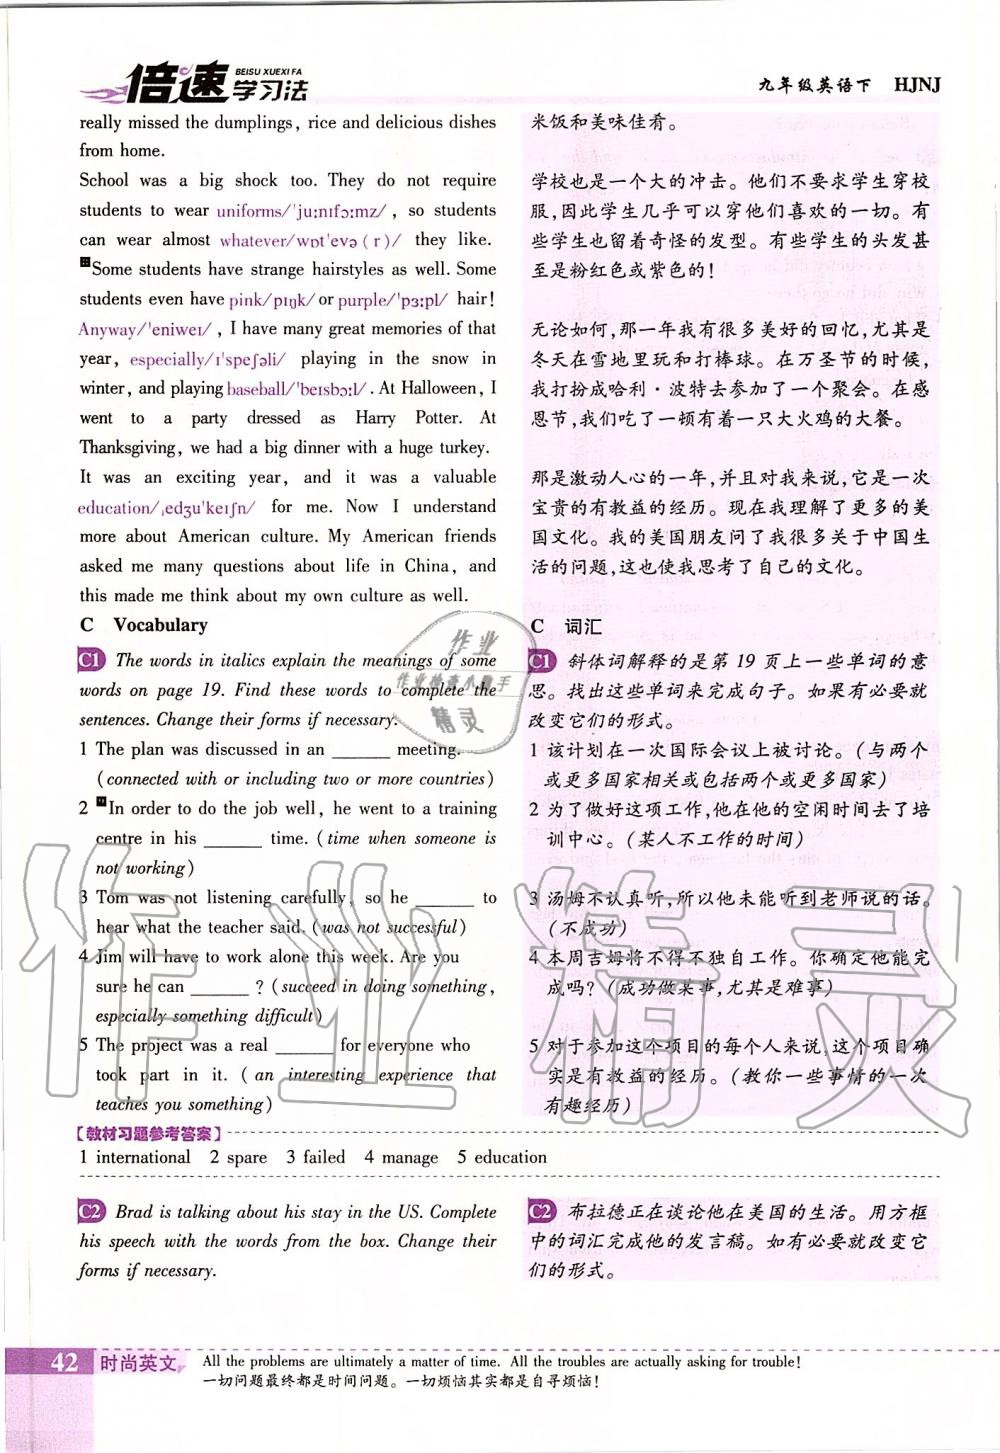 倍速
BEISU XUEXI FA
学习法
九年级英语下 HJNJ
really missed the dumplings, rice and delicious dishes
from home.
School was a big shock too. They do not require
students to wear uniforms/'juːnɪfɔːmz/, so students
can wear almost whatever/wɒt'evə(r)/ they like.
Some students have strange hairstyles as well. Some
students even have pink/pɪŋk/ or purple/'pɜːpl/ hair!
Anyway/'eniweɪ/, I have many great memories of that
year, especially/ɪ'speʃəli/ playing in the snow in
winter, and playing baseball/'beɪsbɔːl/. At Halloween, I
went to a party dressed as Harry Potter. At
Thanksgiving, we had a big dinner with a huge turkey.
It was an exciting year, and it was a valuable
education/ˌedʒu'keɪʃn/ for me. Now I understand
more about American culture. My American friends
asked me many questions about life in China, and
this made me think about my own culture as well.
米饭和美味佳肴。
学校也是一个大的冲击。他们不要求学生穿校
服,因此学生几乎可以穿他们喜欢的一切。有
些学生也留着奇怪的发型。有些学生的头发甚
至是粉红色或紫色的!
无论如何,那一年我有很多美好的回忆,尤其是
冬天在雪地里玩和打棒球。在万圣节的时候,
我打扮成哈利·波特去参加了一个聚会。在感
恩节,我们吃了一顿有着一只大火鸡的大餐。
那是激动人心的一年,并且对我来说,它是一次
宝贵的有教益的经历。现在我理解了更多的美
国文化。我的美国朋友问了我很多关于中国生
活的问题,这也使我思考了自己的文化。
C Vocabulary
C1 The words in italics explain the meanings of some
words on page 19. Find these words to complete the
sentences. Change their forms if necessary.
1 The plan was discussed in an ______ meeting.
(connected with or including two or more countries)
2 In order to do the job well, he went to a training
centre in his ______ time. (time when someone is
not working)
3 Tom was not listening carefully, so he ______ to
hear what the teacher said. (was not successful)
4 Jim will have to work alone this week. Are you
sure he can ______ ? (succeed in doing something,
especially something difficult)
5 The project was a real ______ for everyone who
took part in it. (an interesting experience that
teaches you something)
C 词汇
C1 斜体词解释的是第19页上一些单词的意
思。找出这些单词来完成句子。如果有必要就
改变它们的形式。
1 该计划在一次国际会议上被讨论。(与两个
或更多国家相关或包括两个或更多国家)
2 为了做好这项工作,他在他的空闲时间去了培
训中心。(某人不工作的时间)
3 汤姆不认真听,所以他未能听到老师说的话。
(不成功)
4 本周吉姆将不得不独自工作。你确定他能完
成吗?(成功做某事,尤其是难事)
5 对于参加这个项目的每个人来说,这个项目确
实是有教益的经历。(教你一些事情的一次
有趣经历)
【教材习题参考答案】
1 international 2 spare 3 failed 4 manage 5 education
C2 Brad is talking about his stay in the US. Complete
his speech with the words from the box. Change their
forms if necessary.
C2 布拉德正在谈论他在美国的生活。用方框
中的词汇完成他的发言稿。如有必要就改变它
们的形式。
42 时尚英文
All the problems are ultimately a matter of time. All the troubles are actually asking for trouble!
一切问题最终都是时间问题。一切烦恼其实都是自寻烦恼!
作业
作业检查小助手
精灵
作业精灵